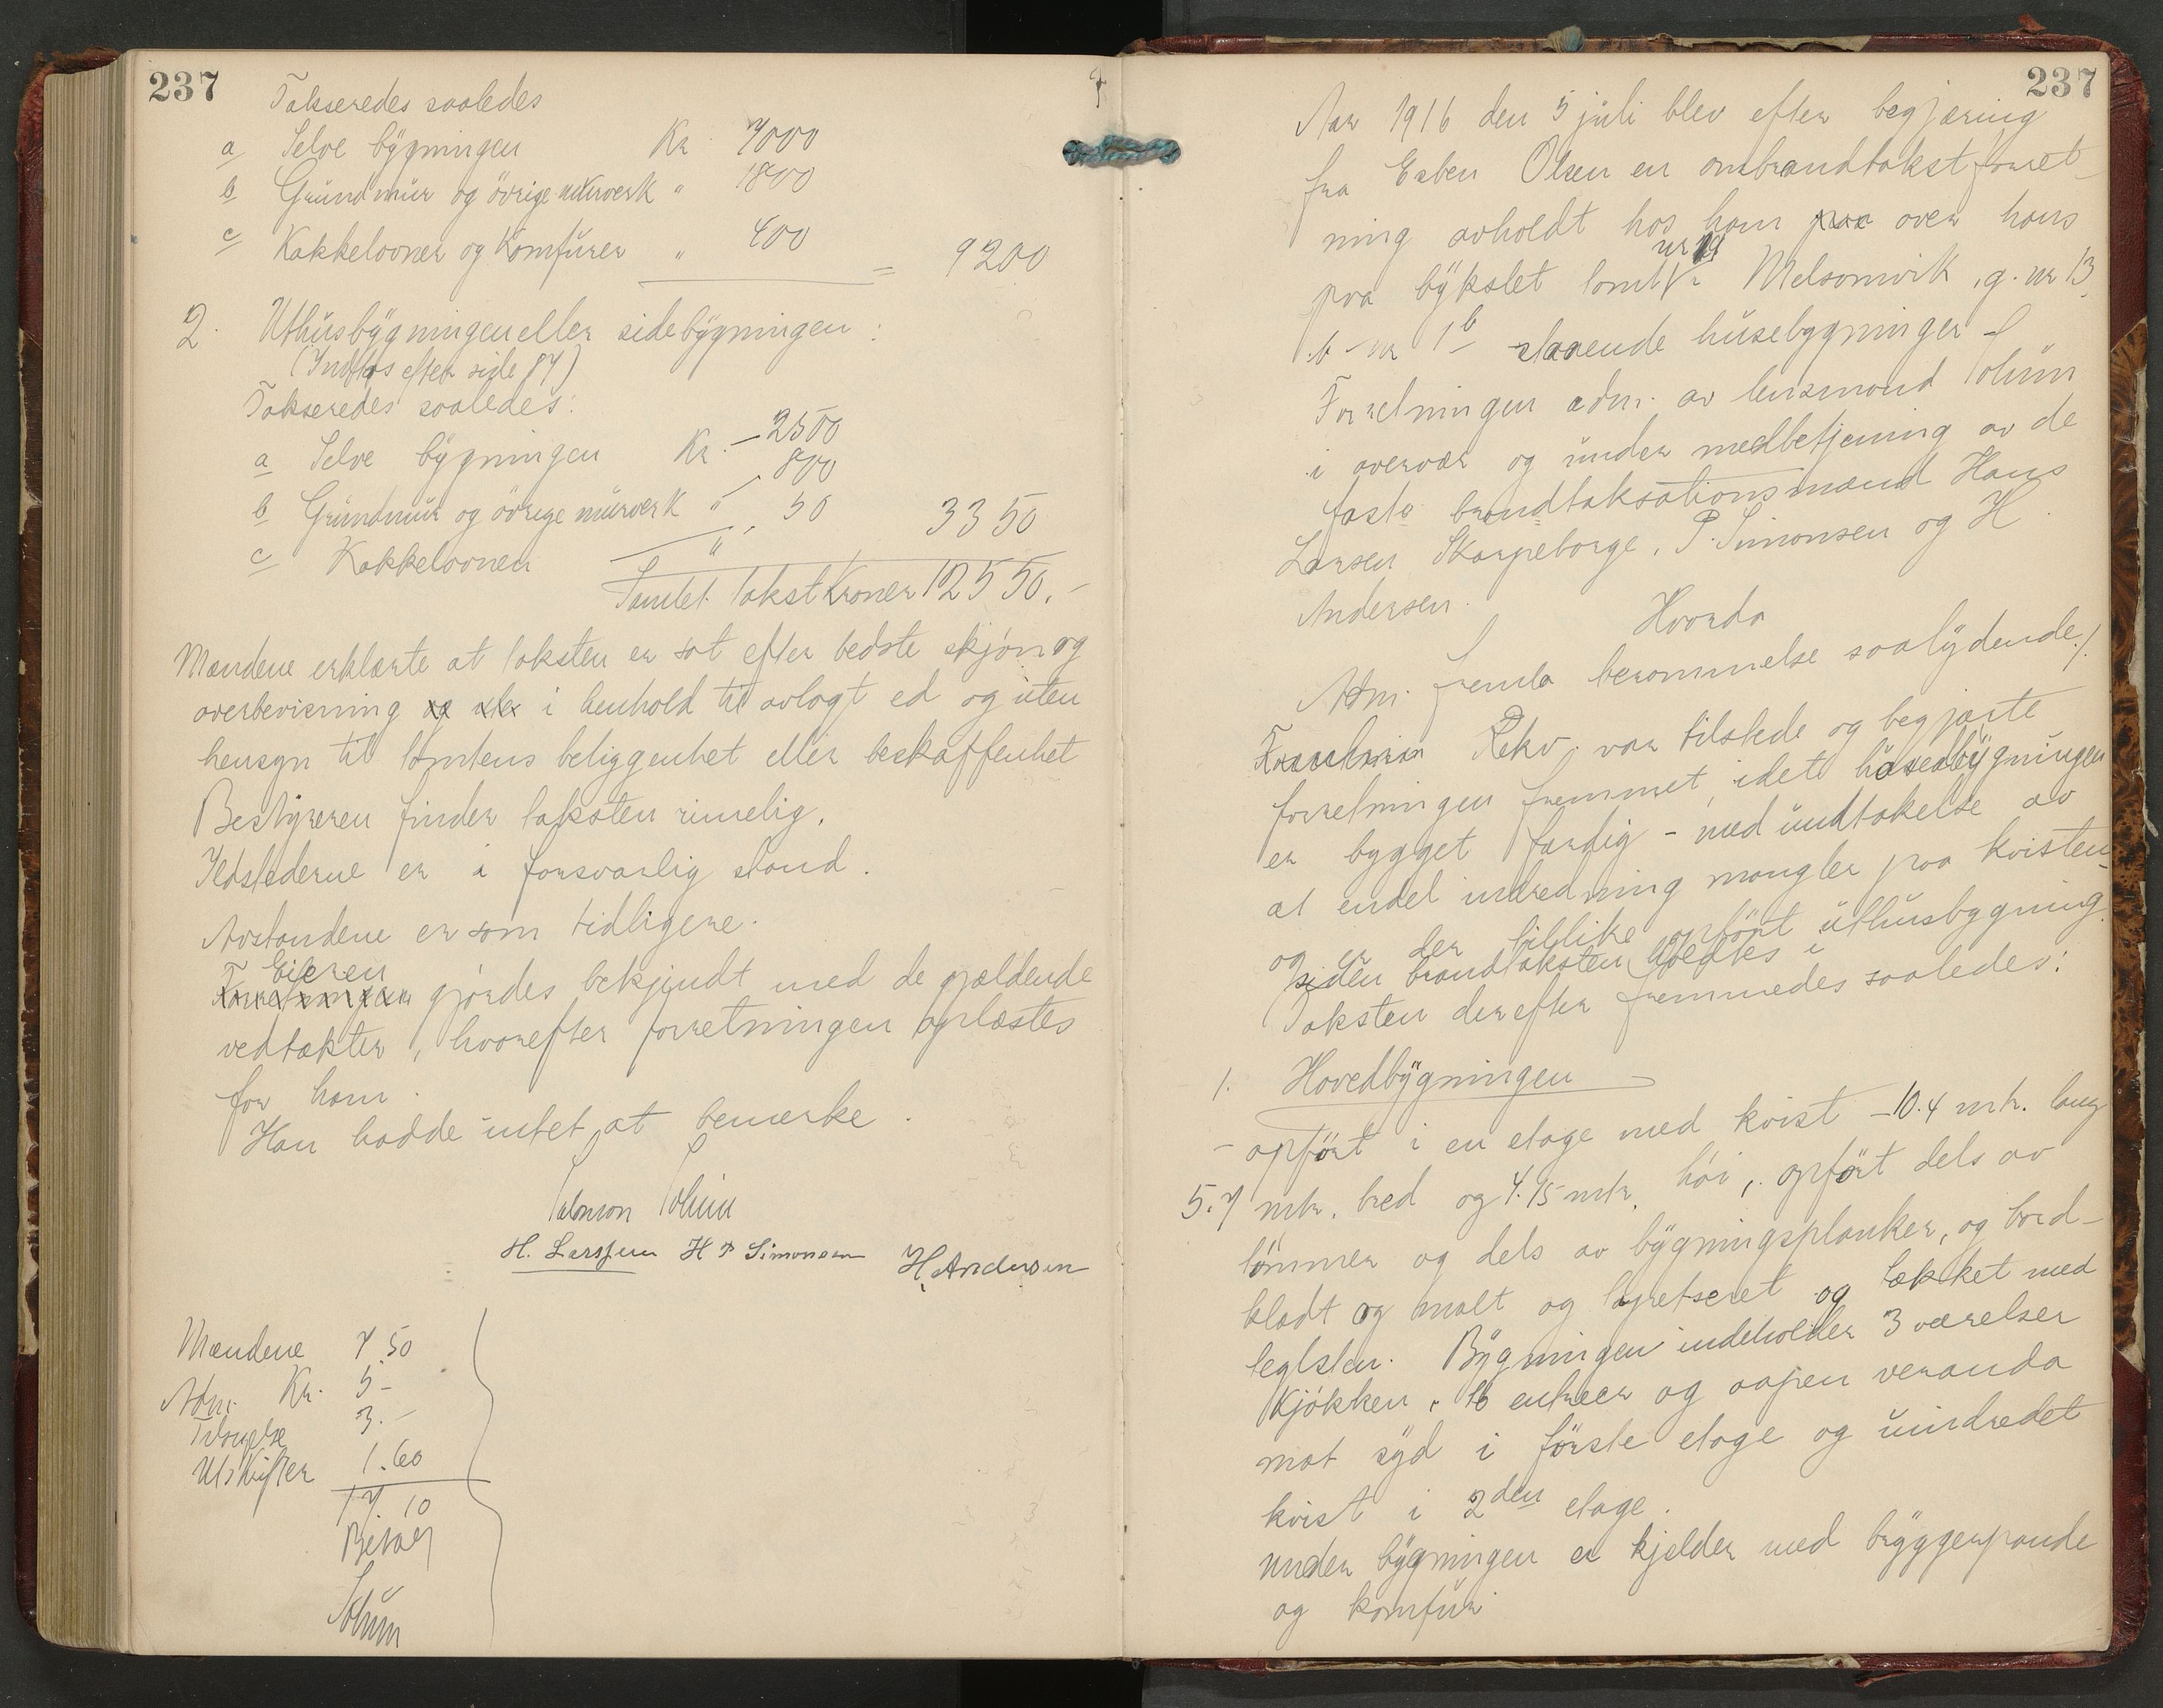 237
Takseredes saaledes
a Selve bygningen Kr. 7000
b Grundmur og övrige murverk " 1800
c Kakkelovner og Komfurer " 400 = 9200
2. Uthusbygningen eller sidebygningen :
(Indtas efter side 87)
Takseredes saaledes:
a Selve bygningen Kr. 2500
b Grundmur og övrige murverk " 800
c Kakkelovnen " 50 3350
Samlet takst Kroner 12550.-
Mændene erklærte at taksten er sat efter bedste skjön og
overbevisning i henhold til avlagt ed og uten
hensyn til tomtens beliggenhet eller beskaffenhet
Bestyreren finder taksten rimelig.
Ildstederne er i forsvarlig stand.
Avstandene er som tidligere.
Eieren
Forretningen gjördes bekjendt med de gjældende
vedtækter, hvorefter forretningen oplæstes
for ham.
Han hadde intet at bemerke.
Salomon Solum
H. Larssen H P Simonsen H. Andersen
Mændene 7 50
Adm. Kr. 5 -
3. -
Utskrifter 1.60
17 10
Solum
237
Aar 1916 den 5 juli blev efter begjæring
fra Esben Olsen en ombrandtakstforret-
ning avholdt hos ham paa over hans
paa bykslet tomt nr 19 Melsomvik, g. nr 13
b - nr 1 b staaende husebygninger -
Forretningen adm. av lensmand Solum
i overvær og under medbetjening av de
faste brandtaksationsmænd Hans
Larsen Skarpeborge, P. Simonsen og H.
Andersen.
Hvorda
Adm. fremla berammelse saalydende:/.
Rekv. var tilstede og begjærte
forretningen fremmet, idet husebygningen
er bygget færdig - med undtakelse av
at endel indredning mangler paa kvisten
og er der tillike opfört uthusbygning
siden brandtaksten avholdtes i
Taksten derefter fremmedes saaledes:
1. Hovedbygningen
- opfört i en etage med kvist - 10.4 mtr. lang
5.7 mtr. bred og 4.15 mtr. höi, opfört dels av
tömmer og dels av bygningsplanker, og bord-
klædt og malt og tapetseret og tækket med
teglsten. Bygningen indeholder 3 værelser
Kjökken, 16 entreer og aapen veranda
mot syd i förste etage og uindredet
kvist i 2den etage.
Under bygningen er kjelder med bryggerpande
og komfur